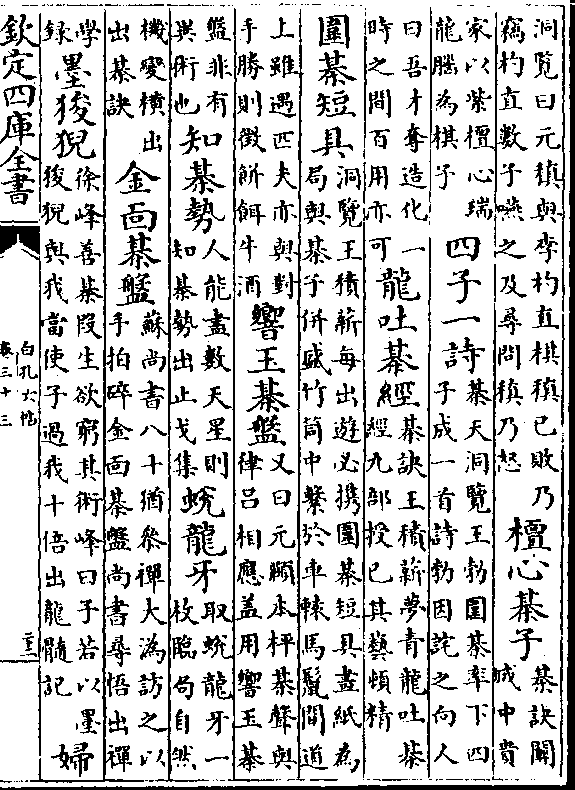 洞覽曰元稹與李杓直棋稹已敗乃
竊杓直數子嚥之及尋問稹乃怒
檀心棊子
棊訣闗
城中貴
家以紫檀心瑞
龍腦為棋子
四子一詩
棊天洞覽王勃圍棊率下四
子成一首詩勃因詫之向人
曰吾才奪造化一
時之間百用亦可
龍吐棊經
棊訣王積薪夢青龍吐棊
經九部授已其藝頓精
圍棊短具
洞覽王積薪每出遊必携圍棊短具畫紙為
局與棊子併盛竹筒中繫於車轅馬鬛間道
上雖遇匹夫亦與對
手勝則徵餅餌牛酒
響玉棊盤
又曰元顥本枰棊聲與
律呂相應蓋用響玉棊
盤非有
異術也
知棊勢
人能盡數天星則
知棊勢出止戈集
蛻龍牙
取蛻龍牙一
枚臨局自然
機變横出
出棊訣
金面棊盤
蘇尚書八十猶叅禪大溈訪之以
手拍碎金面棊盤尚書尋悟出禪
學
録
墨狻猊
徐峰善棊段生欲窮其術峰曰子若以墨
狻猊與我當使子過我十倍出龍髓記
婦
欽定四庫全書
白孔六帖
卷三十三